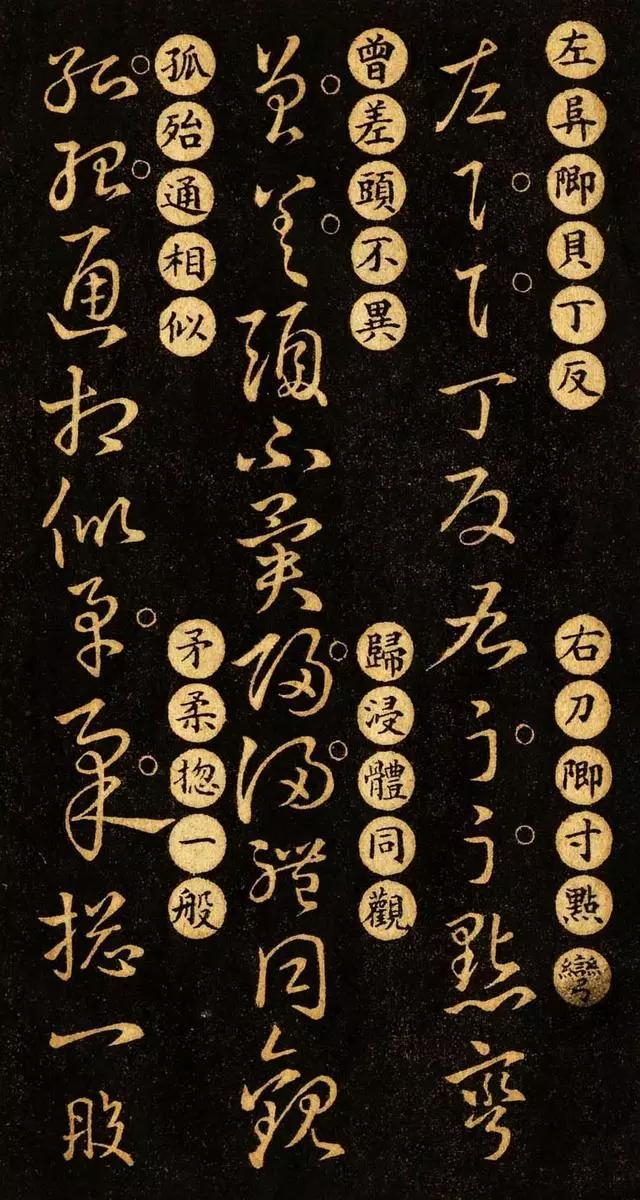 左阜卿貝丁反
右刀卿寸點彎
左阜貝丁反右刀寸點彎
曾差頭不異
歸浸體同觀
曾差頭不異歸浸體同觀
孤殆通相似
矛柔揔一般
孤殆通相似矛柔揔一般